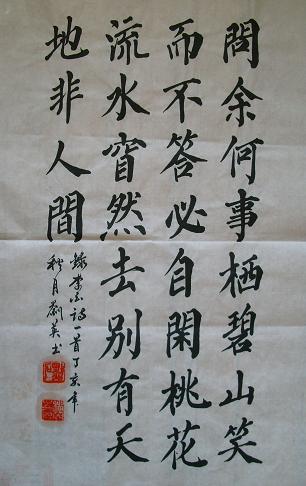 問余何事栖碧山笑
而不答必自閑桃花
流水窅然去别有天
地非人間
錄李白詩一首丁亥年
秋月劉英书